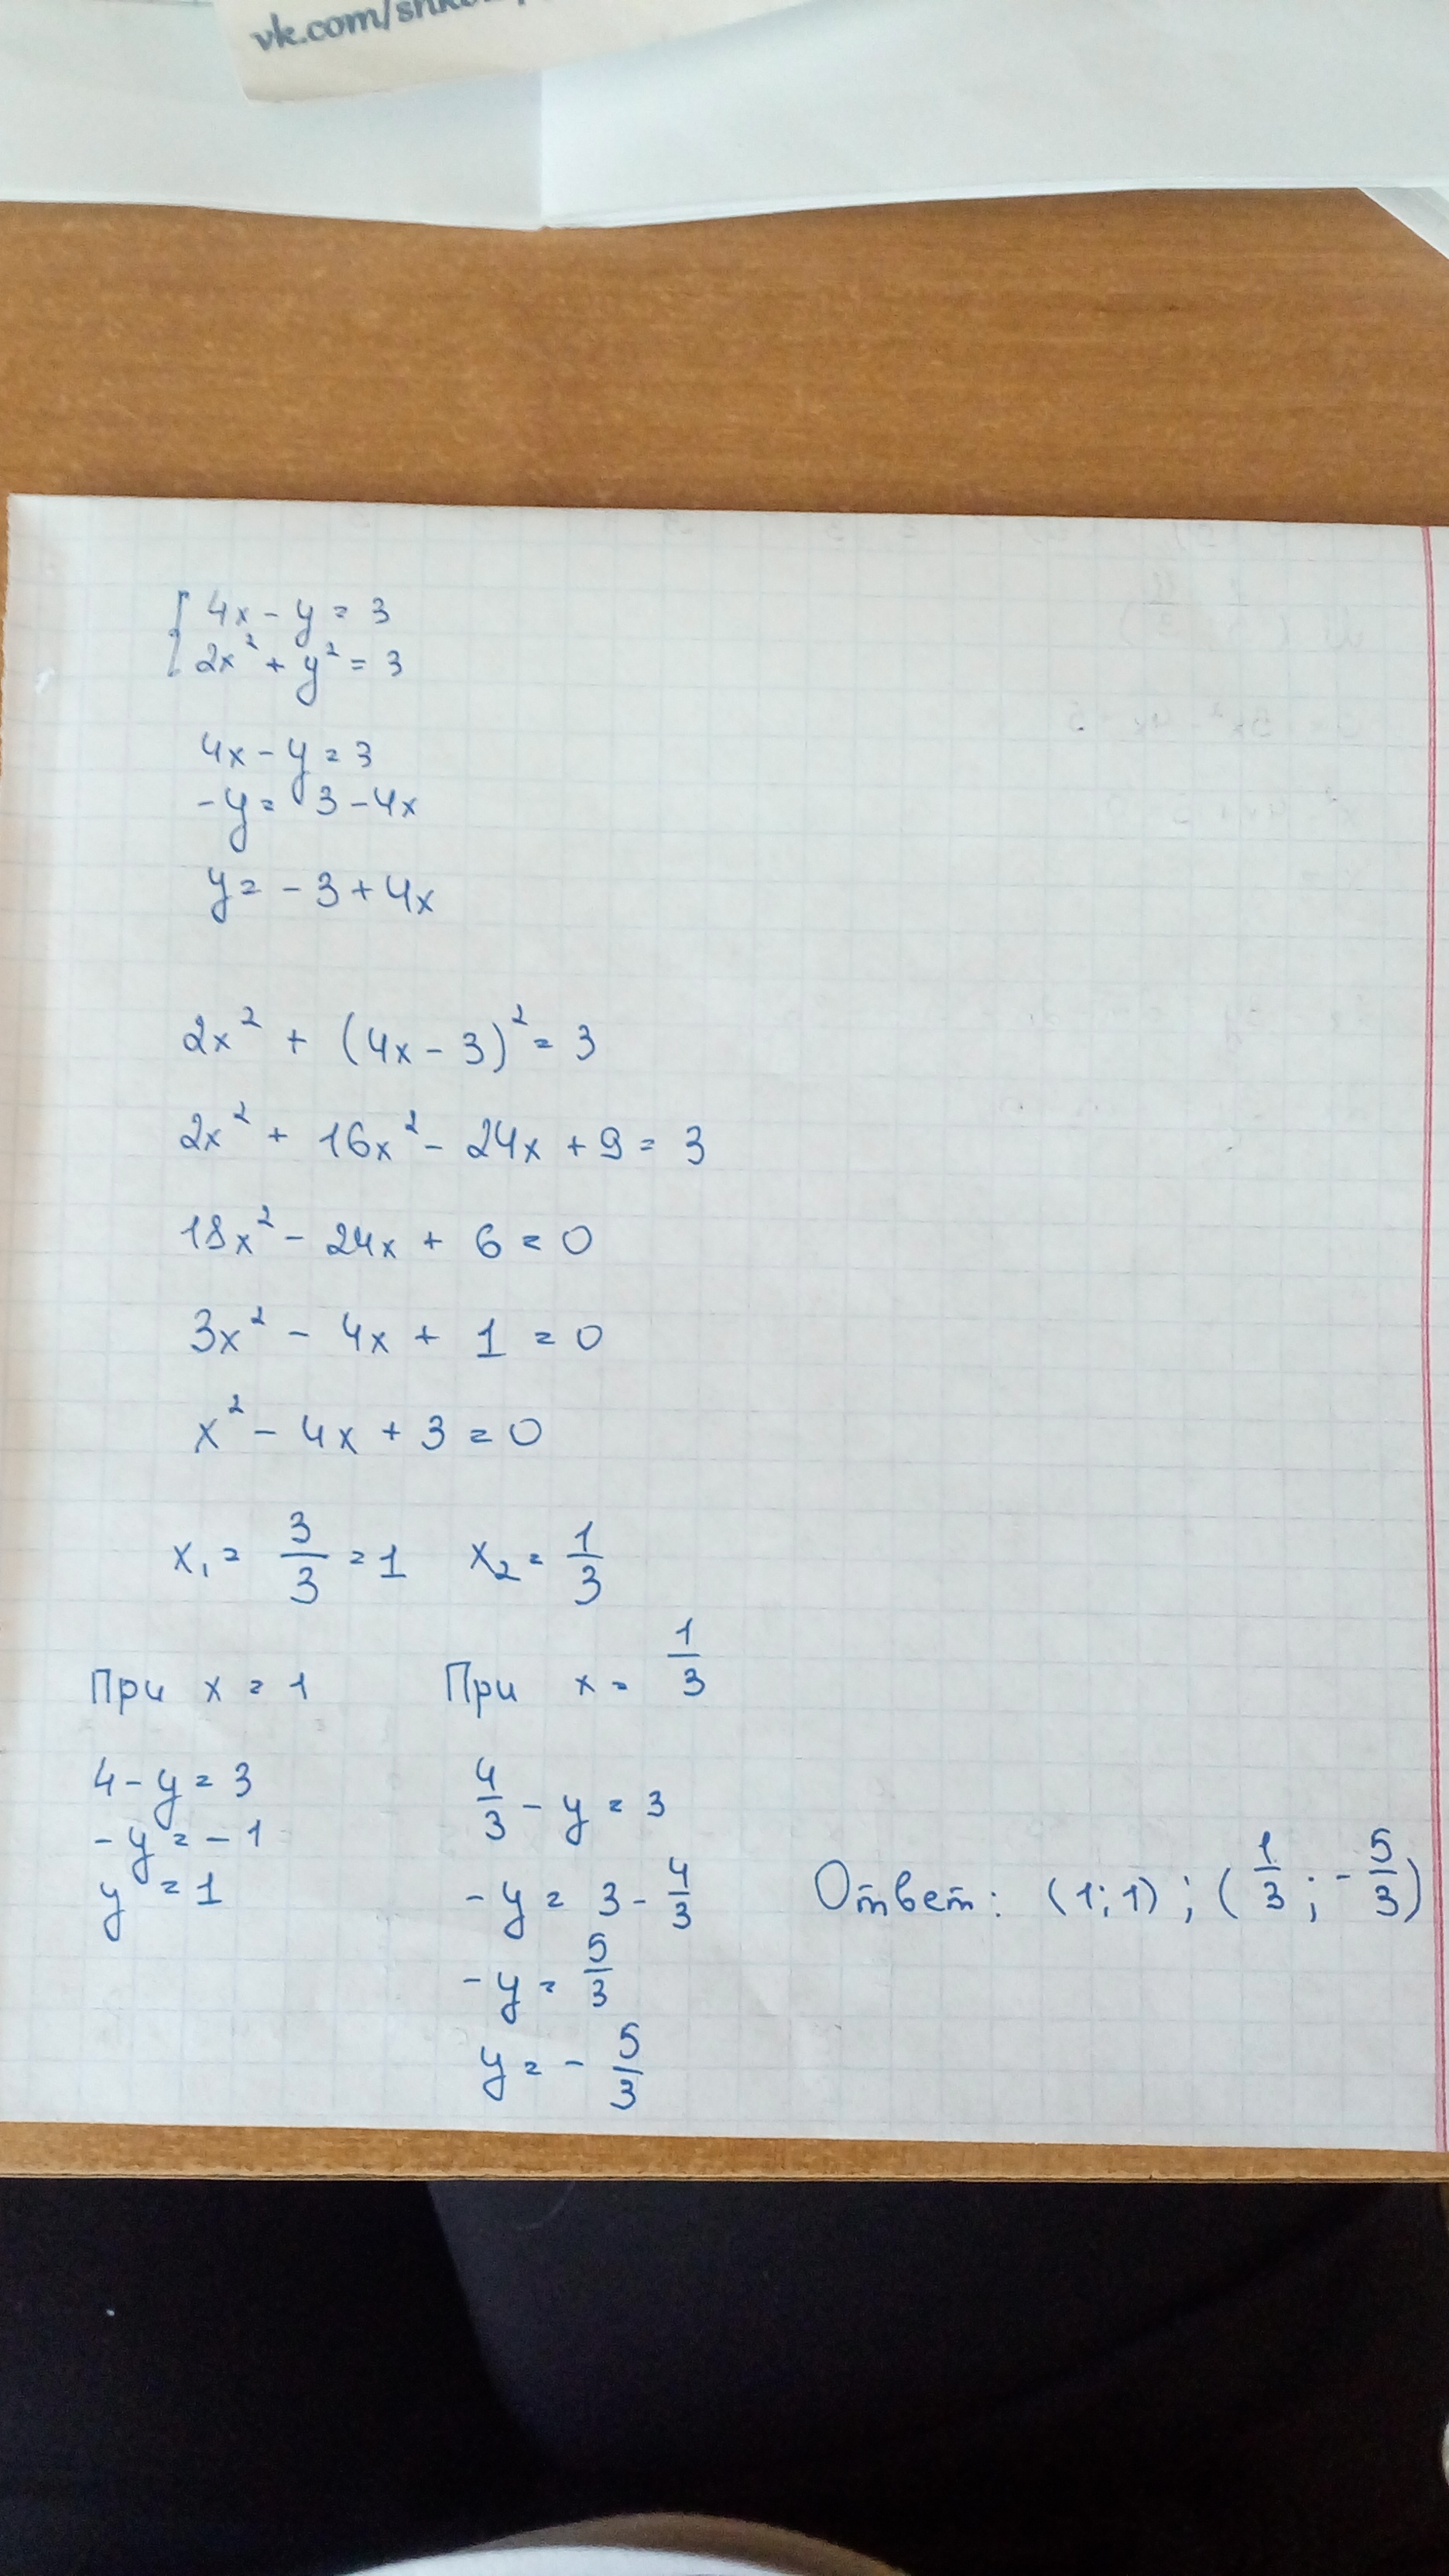 vk.com/shko
4x - y = 3
2x² + y² = 3
4x - y = 3
-y = 3 - 4x
y = - 3 + 4x
2x² + (4x - 3)² = 3
2x² + 16x² - 24x + 9 = 3
18x² - 24x + 6 = 0
3x² - 4x + 1 = 0
x² - 4x + 3 = 0
x₁ = 3/3 = 1 x₂ = 1/3
При x = 1 При x = 1/3
4 - y = 3
-y = -1
y = 1
4/3 - y = 3
-y = 3 - 4/3
-y = 5/3
y = - 5/3
Ответ: (1; 1) ; (1/3 ; - 5/3)